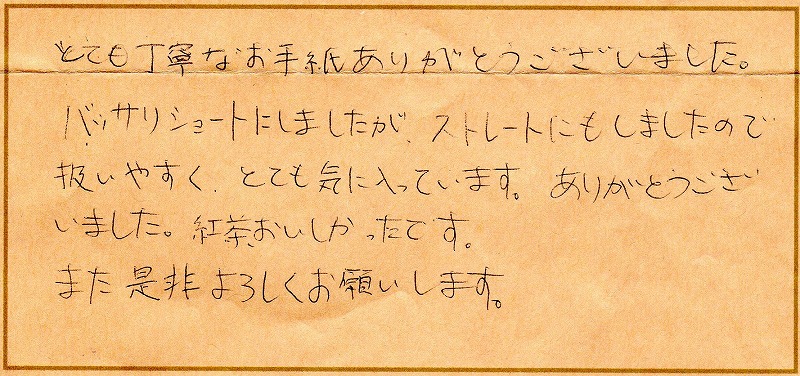 とても丁寧なお手紙ありがとうございました。
バッサリショートにしましたが、ストレートにもしましたので
扱いやすく、とても気に入っています。ありがとうござ
いました。紅茶、おいしかったです。
また是非よろしくお願いします。